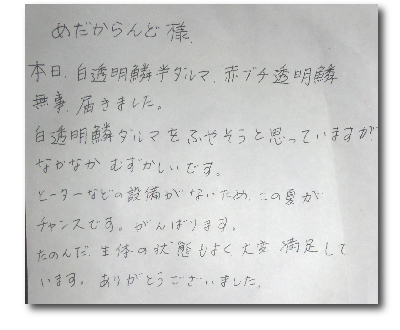 めだからんど様
本日、白透明鱗半ダルマ、赤ブチ透明鱗
無事、届きました。
白透明鱗ダルマをふやそうと思っていますが
なかなかむずかしいです。
ヒーターなどの設備がないため、この夏が
チャンスです。がんばります。
たのんだ、生体の状態もよく大変満足して
います。ありがとうございました。